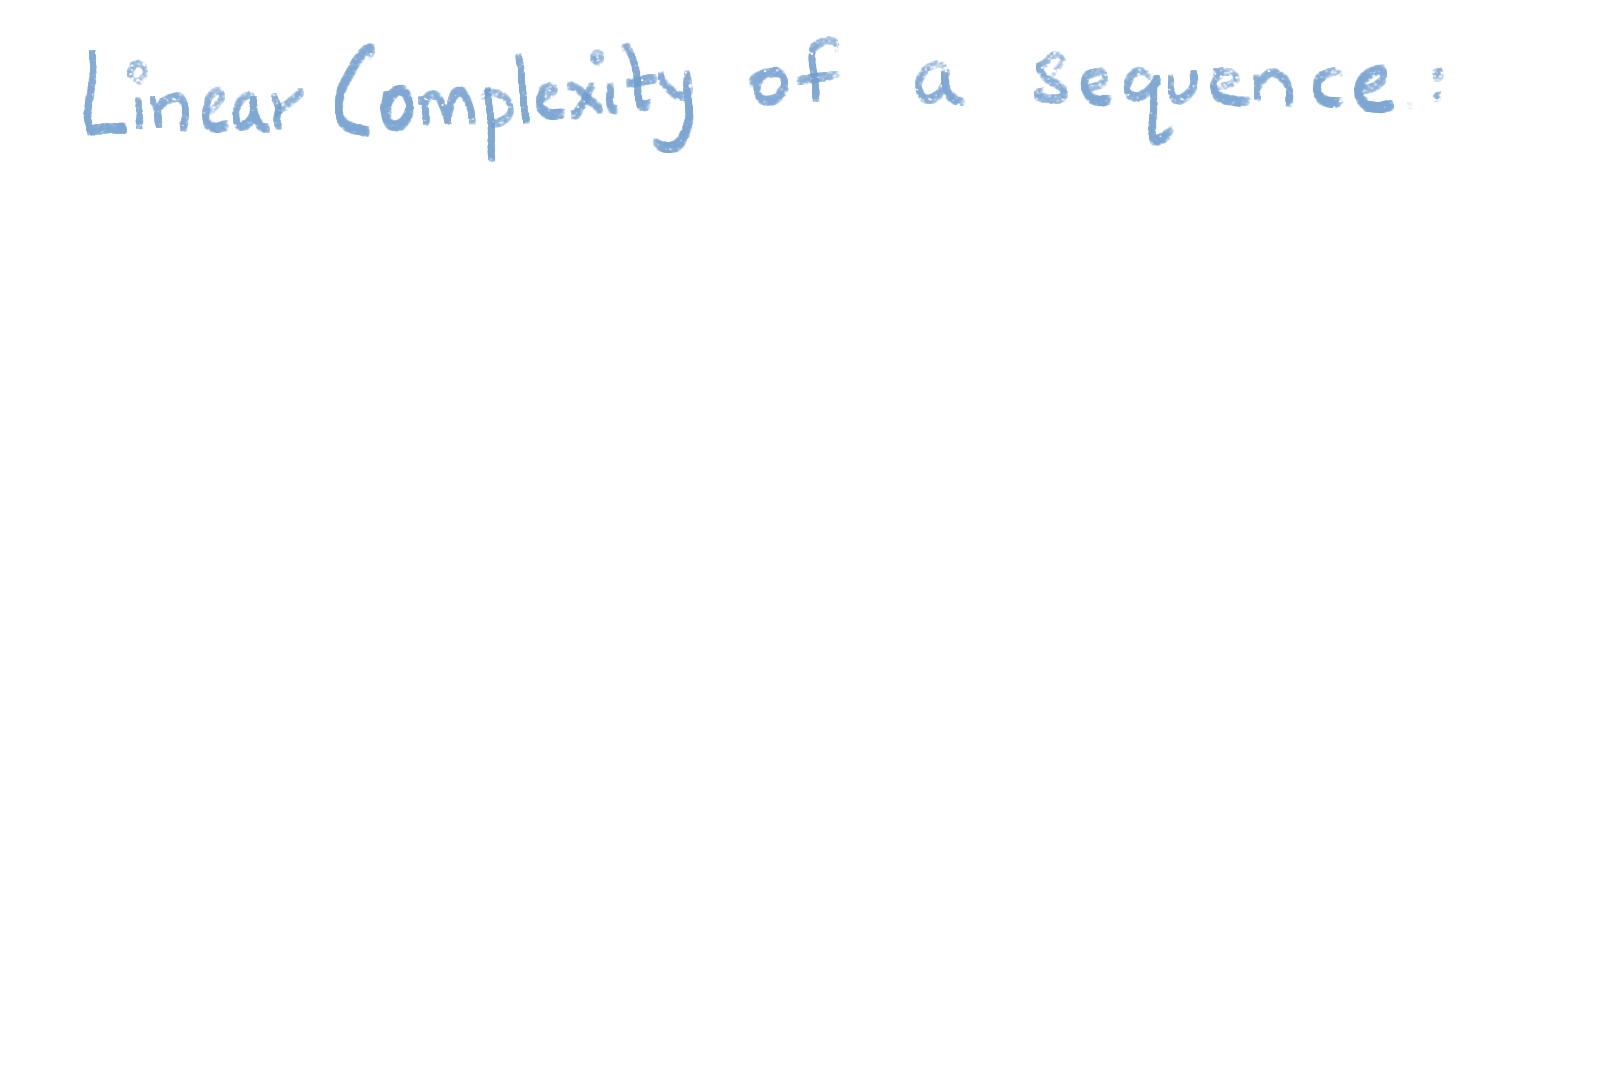 Linear Complexity of a sequence: